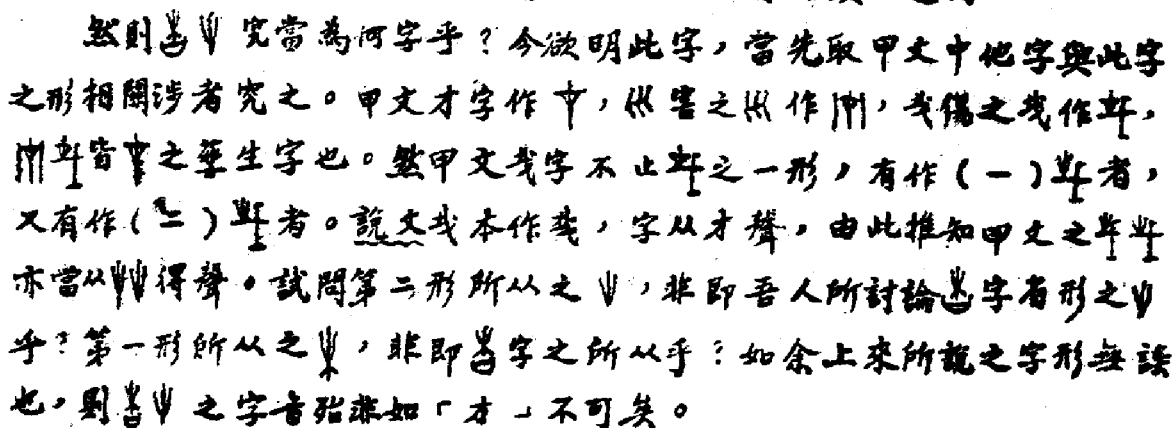 然則 究當為何字乎?今欲明此字,當先取甲文中他字與此字
之形相關涉者究之。甲文才字作,災害之災作,𢦏傷之𢦏作,
皆之孳生字也。然甲文𢦏字不止之一形,有作(一)者,
又有作(二)者。說文𢦏本作,字从才聲,由此推知甲文之
亦當从得聲。試問第二形所从之,非即吾人所討論字省形之
乎?第一形所从之,非即字之所从乎?如余上來所說之字形無誤
也,則之字音殆非如「才」不可矣。